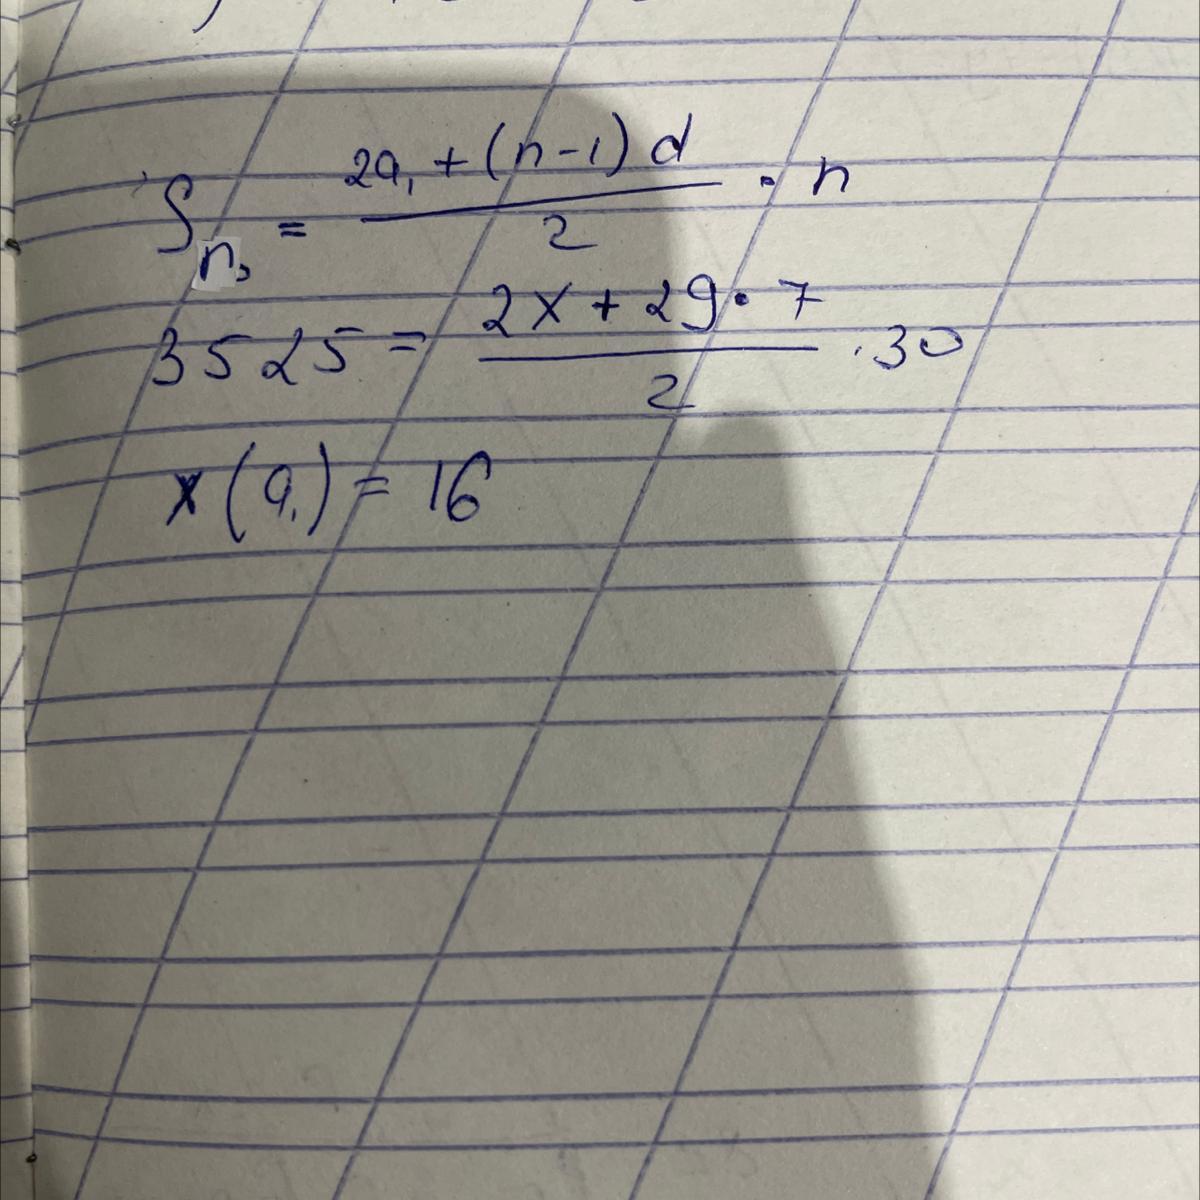 Sₙ = (2a₁ + (n-1) d)/2 · n
3525 = (2x + 29 · 7)/2 · 30
x (a₁) = 16